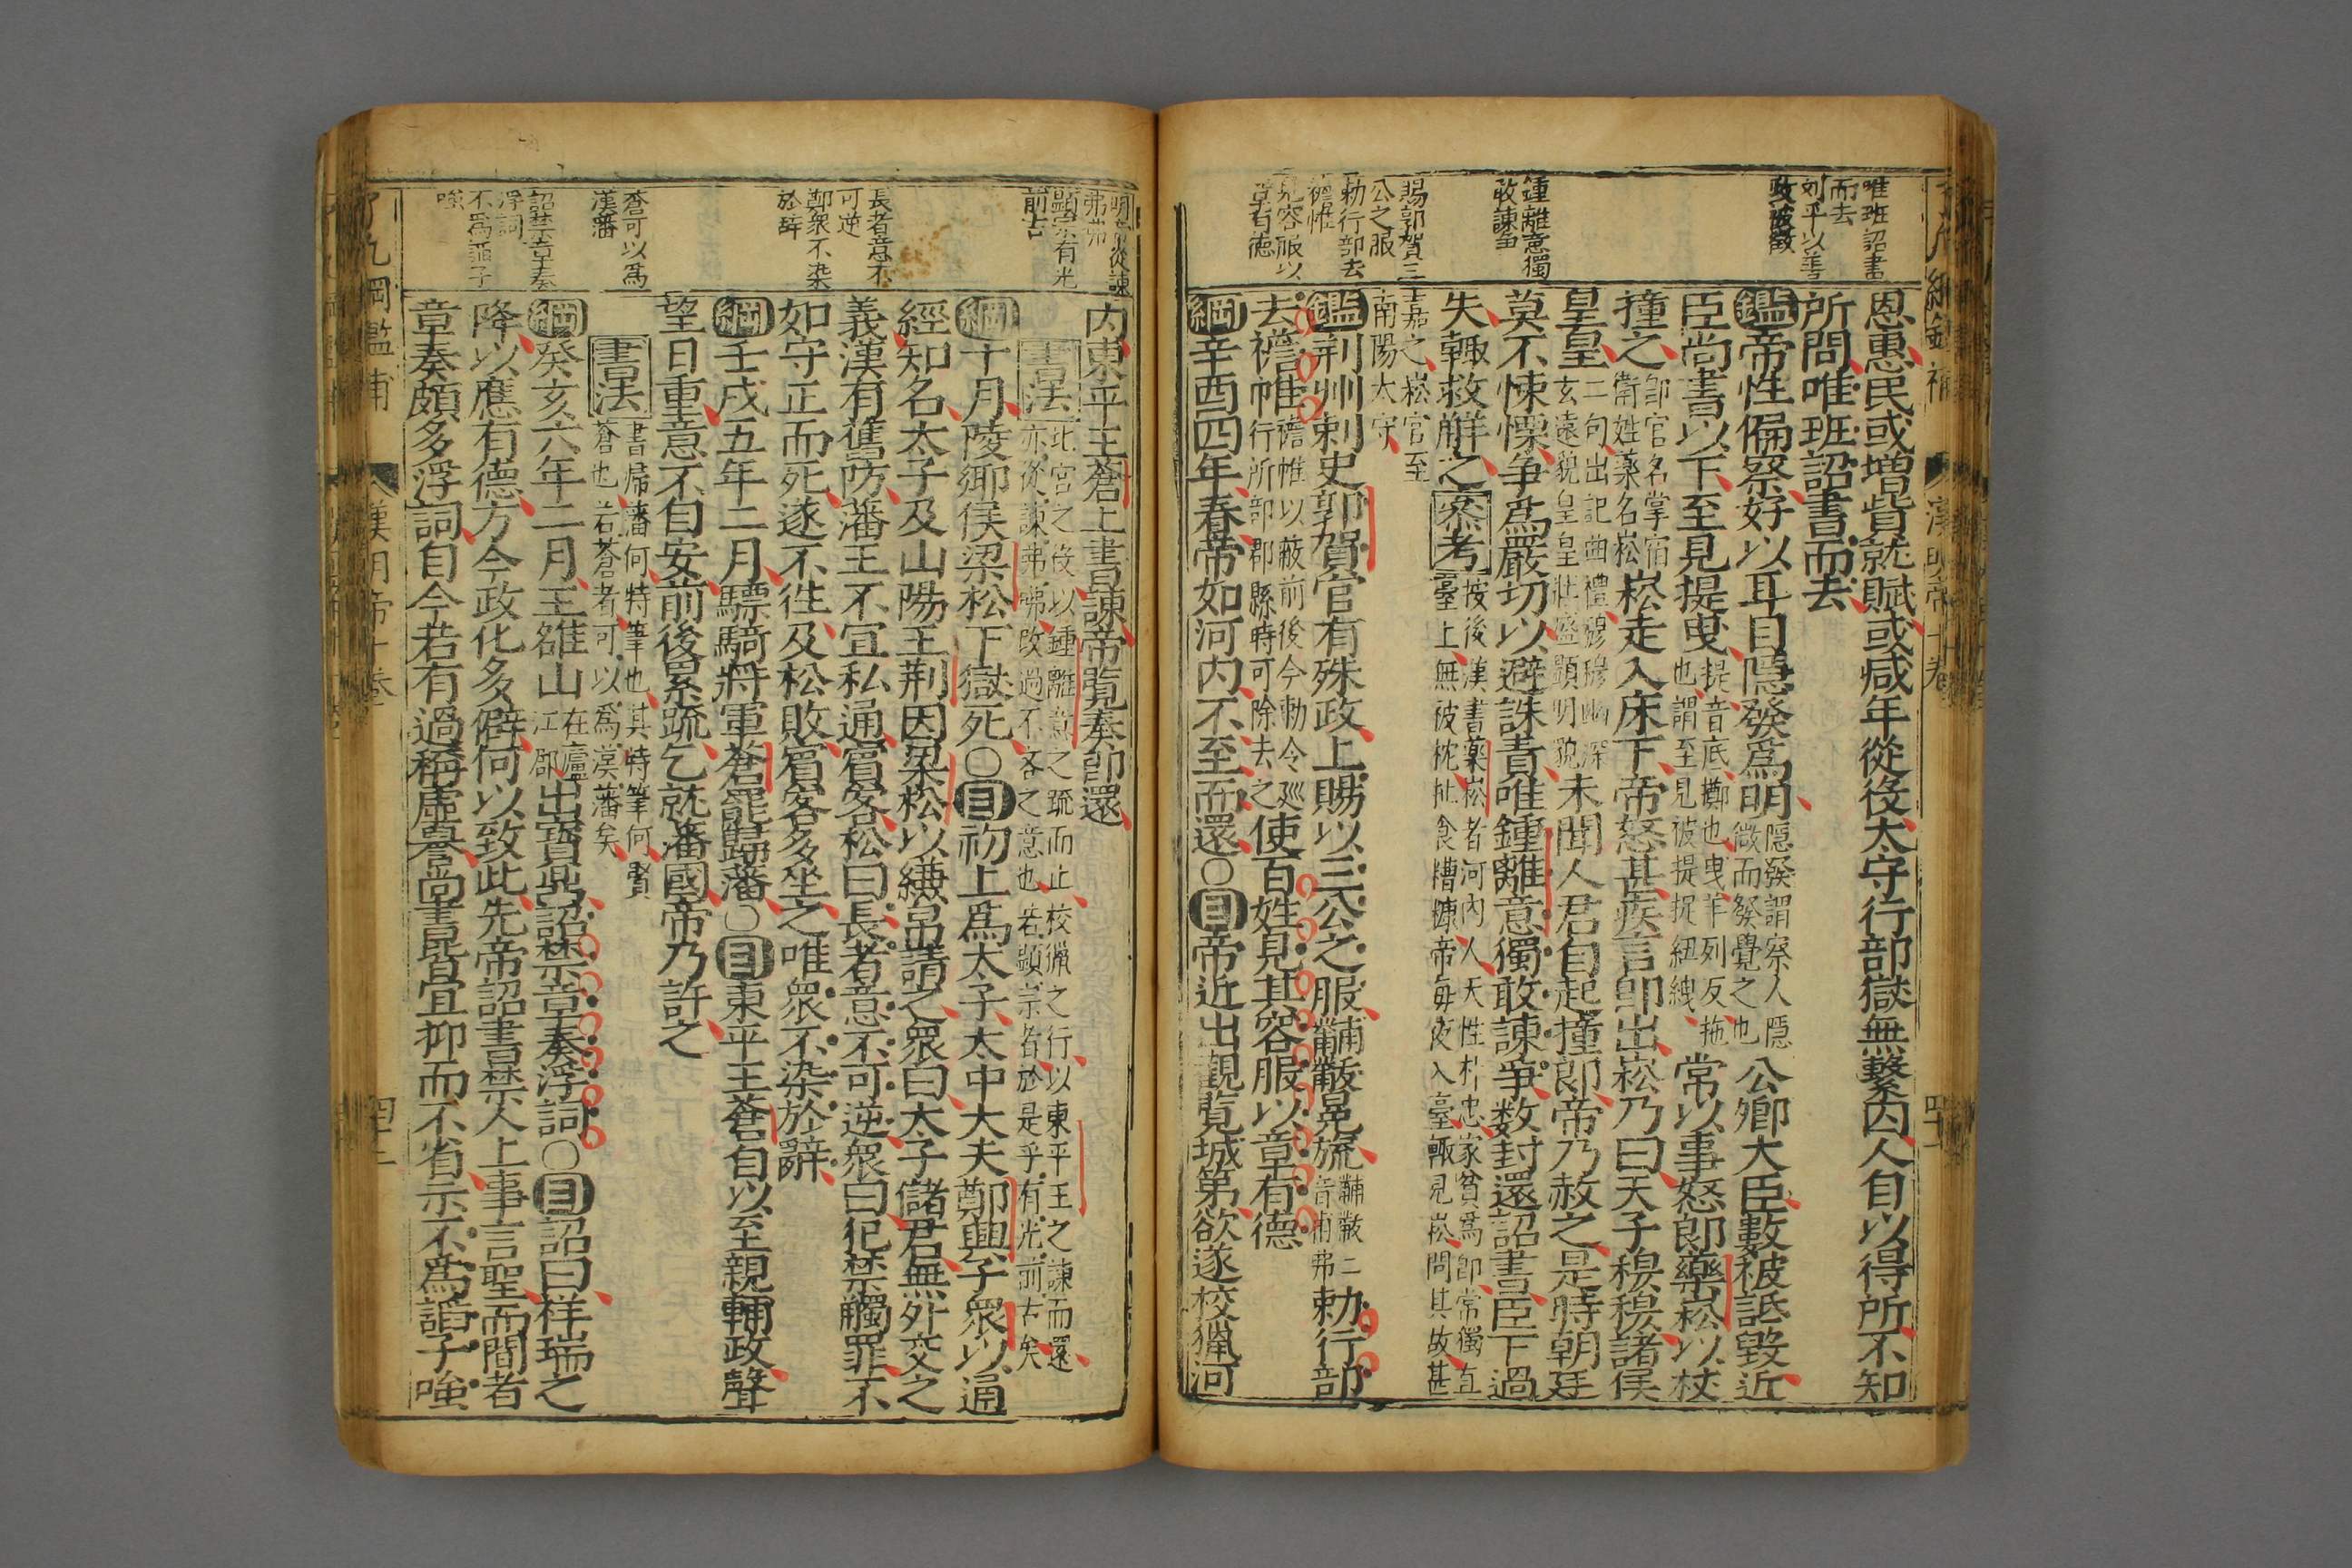 唯班詔書
而去
刘平以善
政被徵
鍾離意獨
敢諫爭
賜郭賀三
公之服
勅行部去
襜帷
見容服以
章有德
恩惠民或增貲就賦或減年從役太守行部獄無繫囚人自以得所不知
所問唯班詔書而去
鑑帝性偏察好以耳目隱發爲明隱發謂察人隱微而發覺之也公卿大臣數被詆毀近
臣尚書以下至見提曳提音底擲也曳羊列反拖也謂至見被提捉紐絏常以事怒郎藥崧以杖
撞之郎官名掌宿衛姓藥名崧崧走入床下帝怒甚疾言郎出崧乃曰天子穆穆諸侯
皇皇二句出記曲禮穆穆幽深玄遠貌皇皇壯盛顯明貌未聞人君自起撞郎帝乃赦之是時朝廷
莫不悚慄争爲嚴切以避誅責唯鍾離意獨敢諫爭数封還詔書臣下過
失輒救解之叅考按後漢書藥崧者河內人天性朴忠家貧爲郎常獨直臺上無被枕杫食糟糠帝每夜入臺輒見崧問其故甚
嘉之崧官至南陽太守
鑑荆州刺史郭賀官有殊政上賜以三公之服黼黻冕旒黼黻二音甫弗勅行部
去襜帷襜帷以蔽前後今勅令廵行所部郡縣時可除去之使百姓見其容服以章有德
綱辛酉四年春帝如河内不至而還○目帝近出觀覧城第欲遂校獵河
九綱鑑補
漢明帝十卷
四十二
明帝從諫
弗咈
顯宗有光
前古
長者意不
可逆
鄭衆不染
於辭
蒼可以爲
漢藩
詔禁章奏
浮詞
不爲謟子
嗤
内東平王蒼上書諫帝覧奏卽還
書法此宮之役以鍾離意之疏而止校獵之行以東平王之諫而還亦從諫弗咈改過不吝之意也若顯宗者於是乎有光前古矣
綱十月陵鄉侯梁松下獄死○目初上爲太子太中大夫鄭興子衆以通
經知名太子及山陽王荆因梁松以縑帛請之衆曰太子儲君無外交之
義漢有舊防藩王不宜私通賓客松曰長者意不可逆衆曰犯禁觸罪不
如守正而死遂不徃及松敗賓客多坐之唯衆不染於辭
綱壬戌五年二月驃騎將軍蒼罷歸藩○目東平王蒼自以至親輔政聲
望日重意不自安前後累疏乞就藩國帝乃許之
書法書歸藩何特筆也其特筆何賢蒼也若蒼者可以爲漢藩矣
綱癸亥六年二月王雒山在廬江郡出寳鼎詔禁章奏浮詞○目詔曰祥瑞之
降以應有德方今政化多僻何以致此先帝詔書禁人上事言聖而間者
章奏頗多浮詞自今若有過稱虛譽尚書皆宜抑而不省示不爲謟子嗤